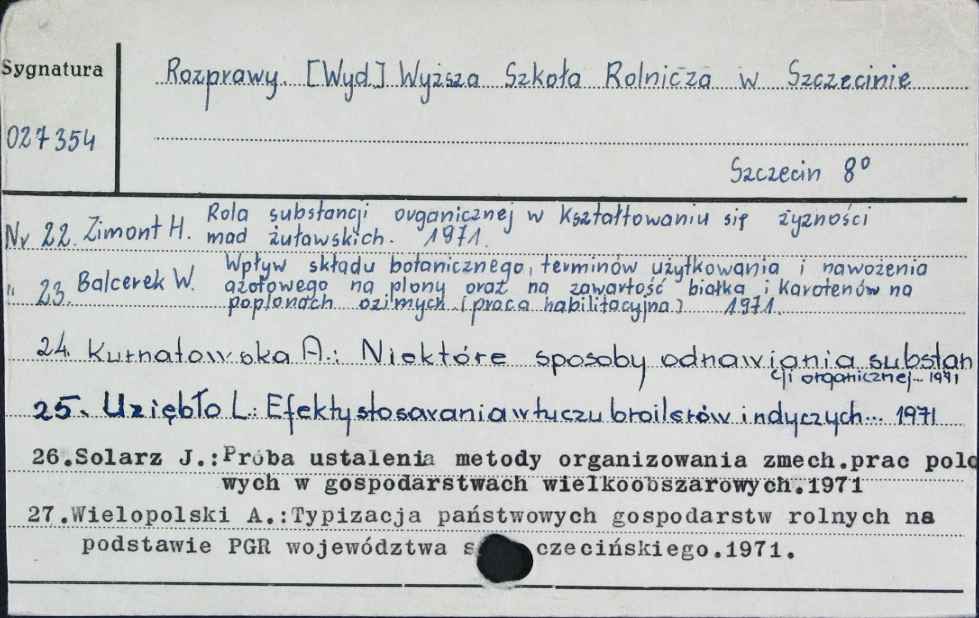 Sygnatura
027354
Rozprawy. [Wyd.] Wyższa Szkoła Rolnicza w Szczecinie
Szczecin 8°
Nr 22. Zimont H. Rola substancji organicznej w kształtowaniu się żyzności
mad żuławskich. 1971.
" 23. Balcerek W. Wpływ składu botanicznego, terminów użytkowania i nawożenia
azotowego na plony oraz na zawartość białka i karotenów na
poplonach ozimych (praca habilitacyjna) 1971.
24. Kurnatowska A.: Niektóre sposoby odnawiania substan
cji organicznej... 1971
25. Uziębło L.: Efekty stosowania w tuczu broilerów indyczych... 1971
26.Solarz J.:Próba ustalenia metody organizowania zmech.prac polo
wych w gospodarstwach wielkoobszarowych.1971
27.Wielopolski A.:Typizacja państwowych gospodarstw rolnych na
podstawie PGR województwa s czecińskiego.1971.